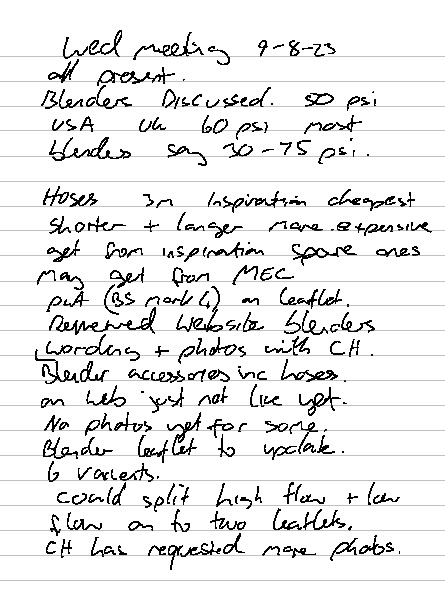 Wed meeting 9-8-23
all present.
Blenders Discussed. 50 psi
USA UK 60 psi most
blenders say 30-75 psi.
Hoses 3m Inspiration cheapest
shorter + longer more expensive
get from inspiration spare ones
may get from MEC
put (BS mark 4) on leaflet.
Reviewed website blenders
wording + photos with CH.
Blender accessories inc hoses.
on web just not live yet.
No photos yet for some.
Blender leaflet to update.
6 varients.
could split high flow + low
flow on to two leaflets.
CH has requested more photos.